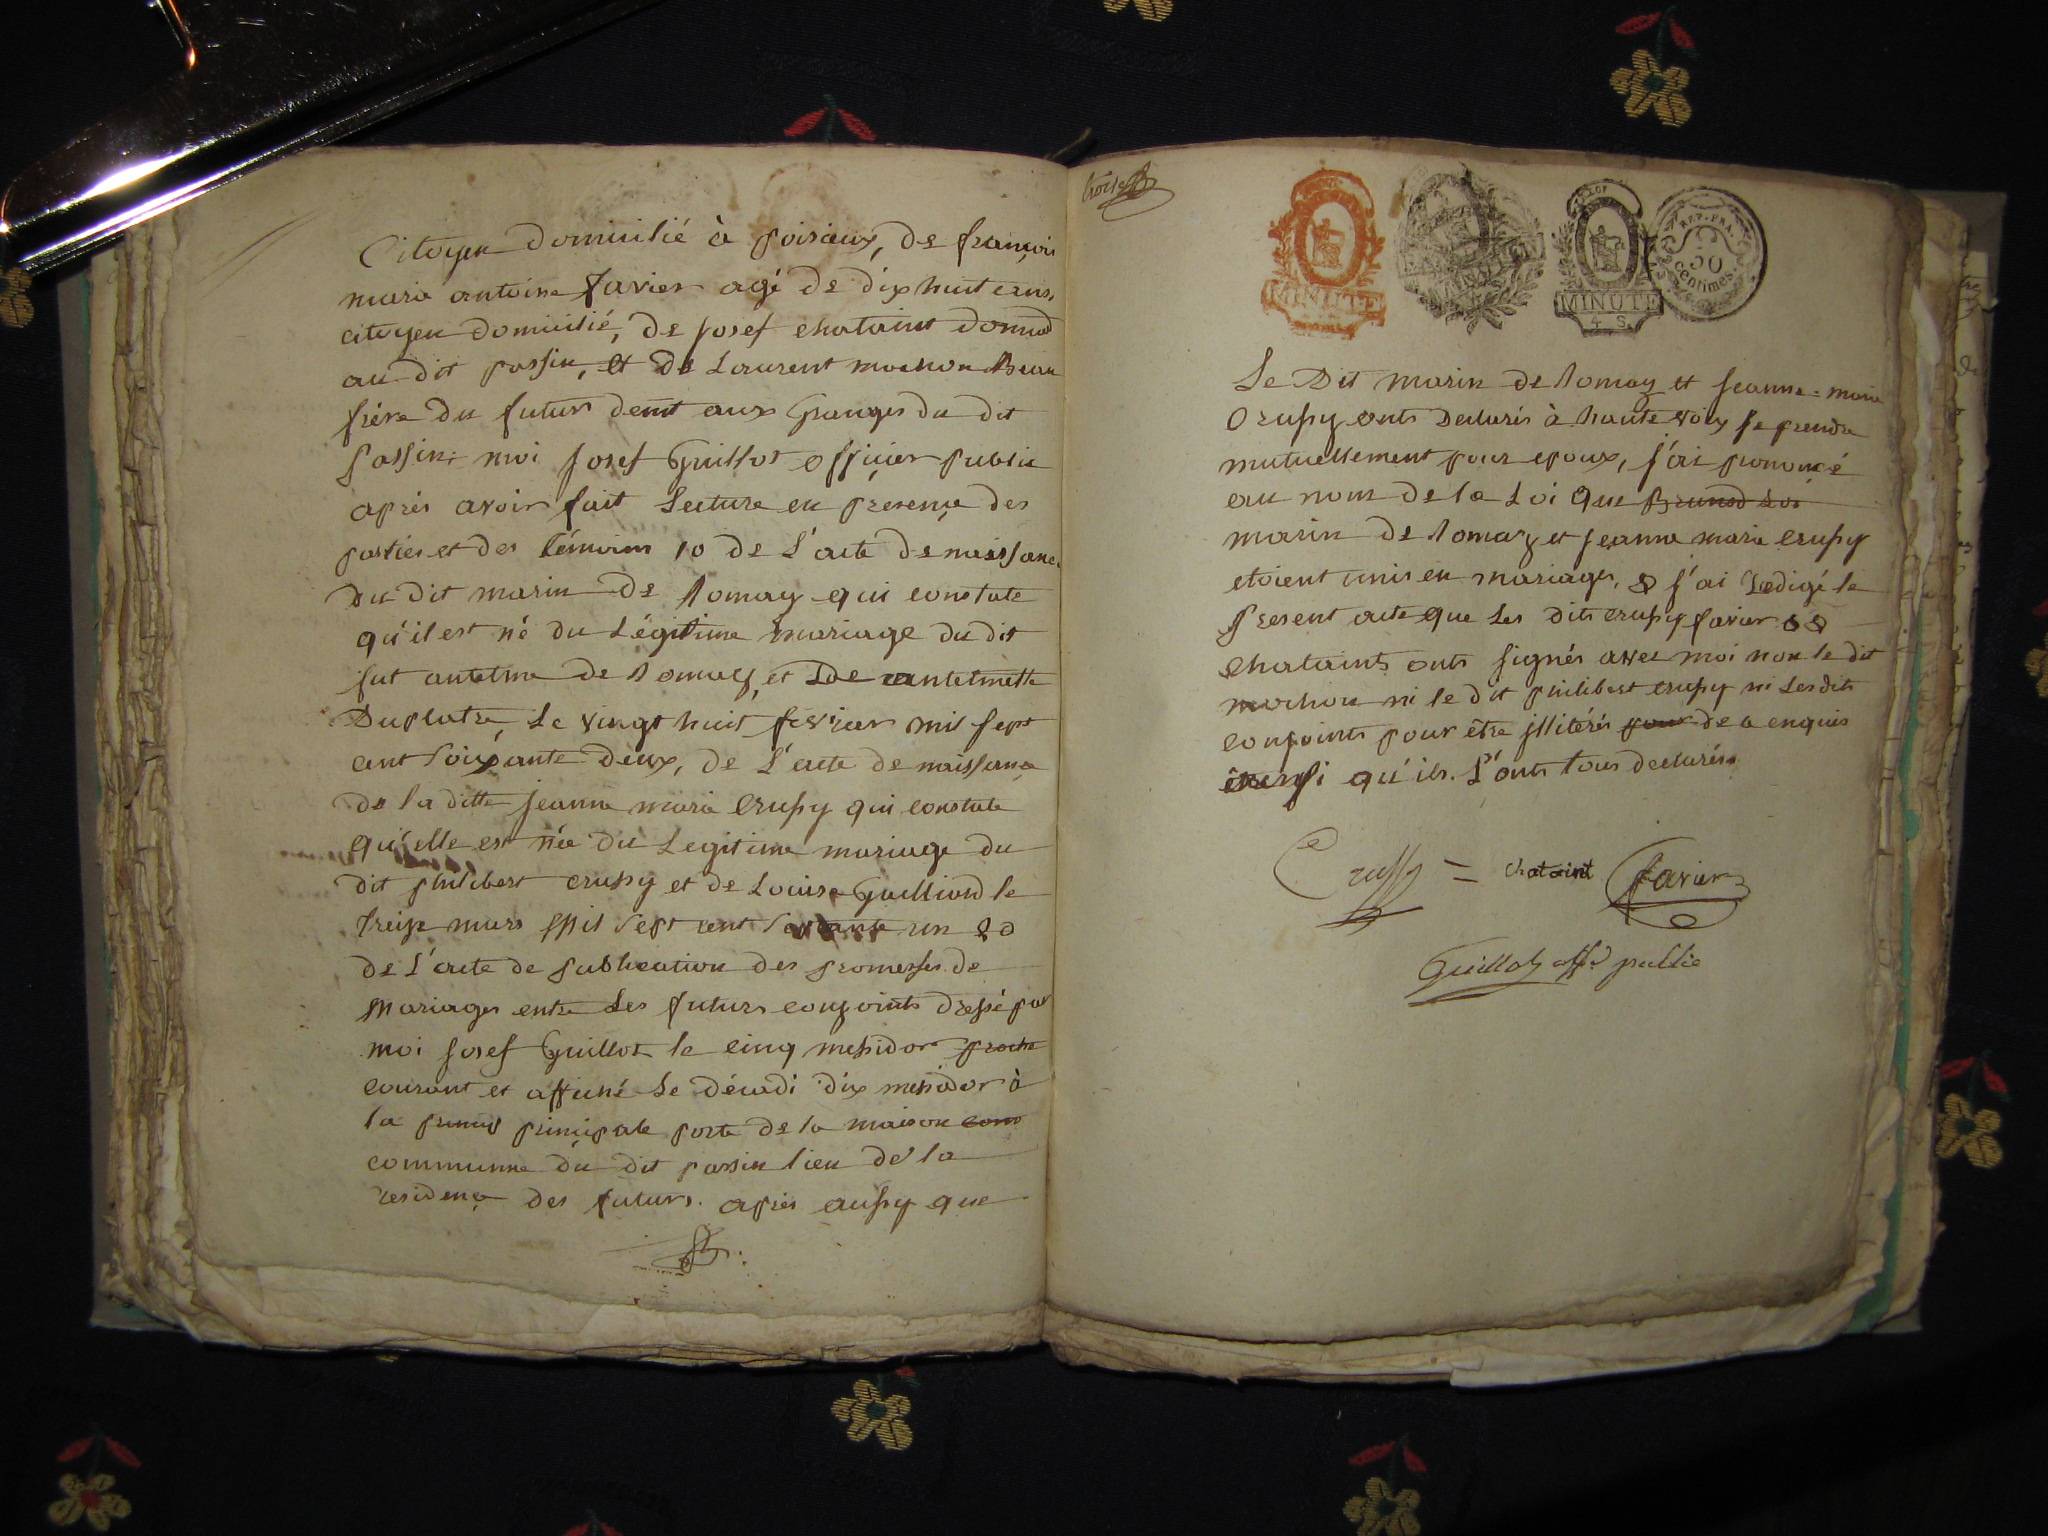 Citoyen domicilié à poisieux, de françois
marie antoine favier agé de dix huit ans,
citoyen domicilié, de josef chataint
au dit passin, et de Laurent mochon Beau
frére du futur demt aux Granges du dit
passin, moi josef Guillot officier public
après avoir fait Lecture en présence des
parties et des témoins 10 de L'acte de naissance
du dit marin de Romay qui constate
qu'il est né du Légitime mariage du dit
fut antelme de Romay, et de antelmette
Duplatre, Le vingt huit fevrier mil sept
cent soixante deux, de L'acte de naissance
de la ditte jeanne marie Crussy qui constate
qu'elle est née du Legitime mariage du
dit philibert crussy et de Louise Guilliond le
treize mars mil sept cent septante un &
de L'acte de publication des promesses de
Mariages entre Les futurs conjoints dressé par
moi josef Guillot le cinq messidor proche
courant et affiché Le décadi dix messidor à
la princi principale porte de la maison com
communne du dit passin lieu de la
residence des futurs. après aussy que
REP. FRA.
50
centimes.
MINUTE
MINUTE
4 S.
Le Dit marin de Romay et jeanne=marie
Crussy onts declarés à haute voix se prendre
mutuellement pour epoux, j'ai prononcé
au nom de la Loi que
marin de Romay et jeanne marie crussy
etoient unis en mariages, & j'ai redigé le
present acte que Les dits crussy favier &
chataints onts signés avec moi non le dit
mochon ni le dit philibert crussy ni Lesdits
conjoints pour être illitérés pour de ce enquis
ainsi qu'ils L'onts tous declarés.
Crussy = chataint favier
Guillot offr public